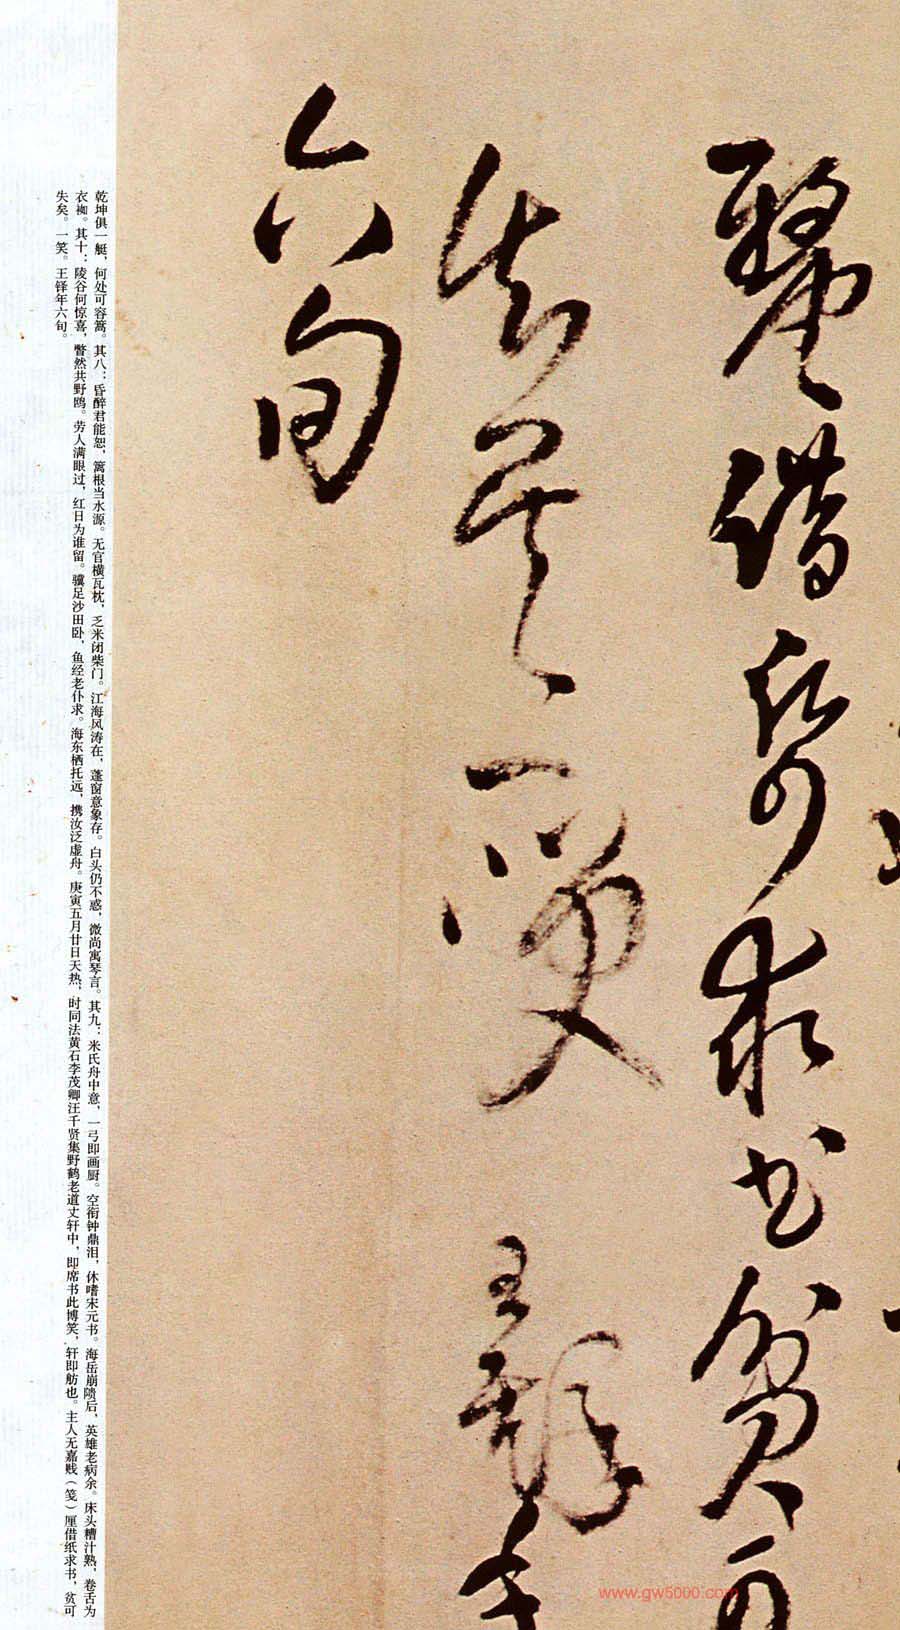 釐借帋求書貧可
失矣一笑王鐸年
六旬
乾坤俱一艇，何处可容篙。其八：昏醉君能恕，篱根当水源。无官横瓦枕，乏米闭柴门。江海风涛在，蓬窗意象存。白头仍不惑，微尚寓琴言。其九：米氏舟中意，一弓即画厨。空衔钟鼎泪，休嗜宋元书。海岳崩隤后，英雄老病余。床头糟汁熟，卷舌为
衣袽。其十：陵谷何惊喜，瞥然共野鸥。劳人满眼过，红日为谁留。骥足沙田卧，鱼经老仆求。海东栖托远，携汝泛虚舟。庚寅五月廿日天热，时同法黄石李茂卿汪千贤集野鹤老道丈轩中，即席书此博笑，轩即舫也。主人无嘉贱（笺）厘借纸求书，贫可
失矣。一笑。王铎年六旬。
www.gw5000.com